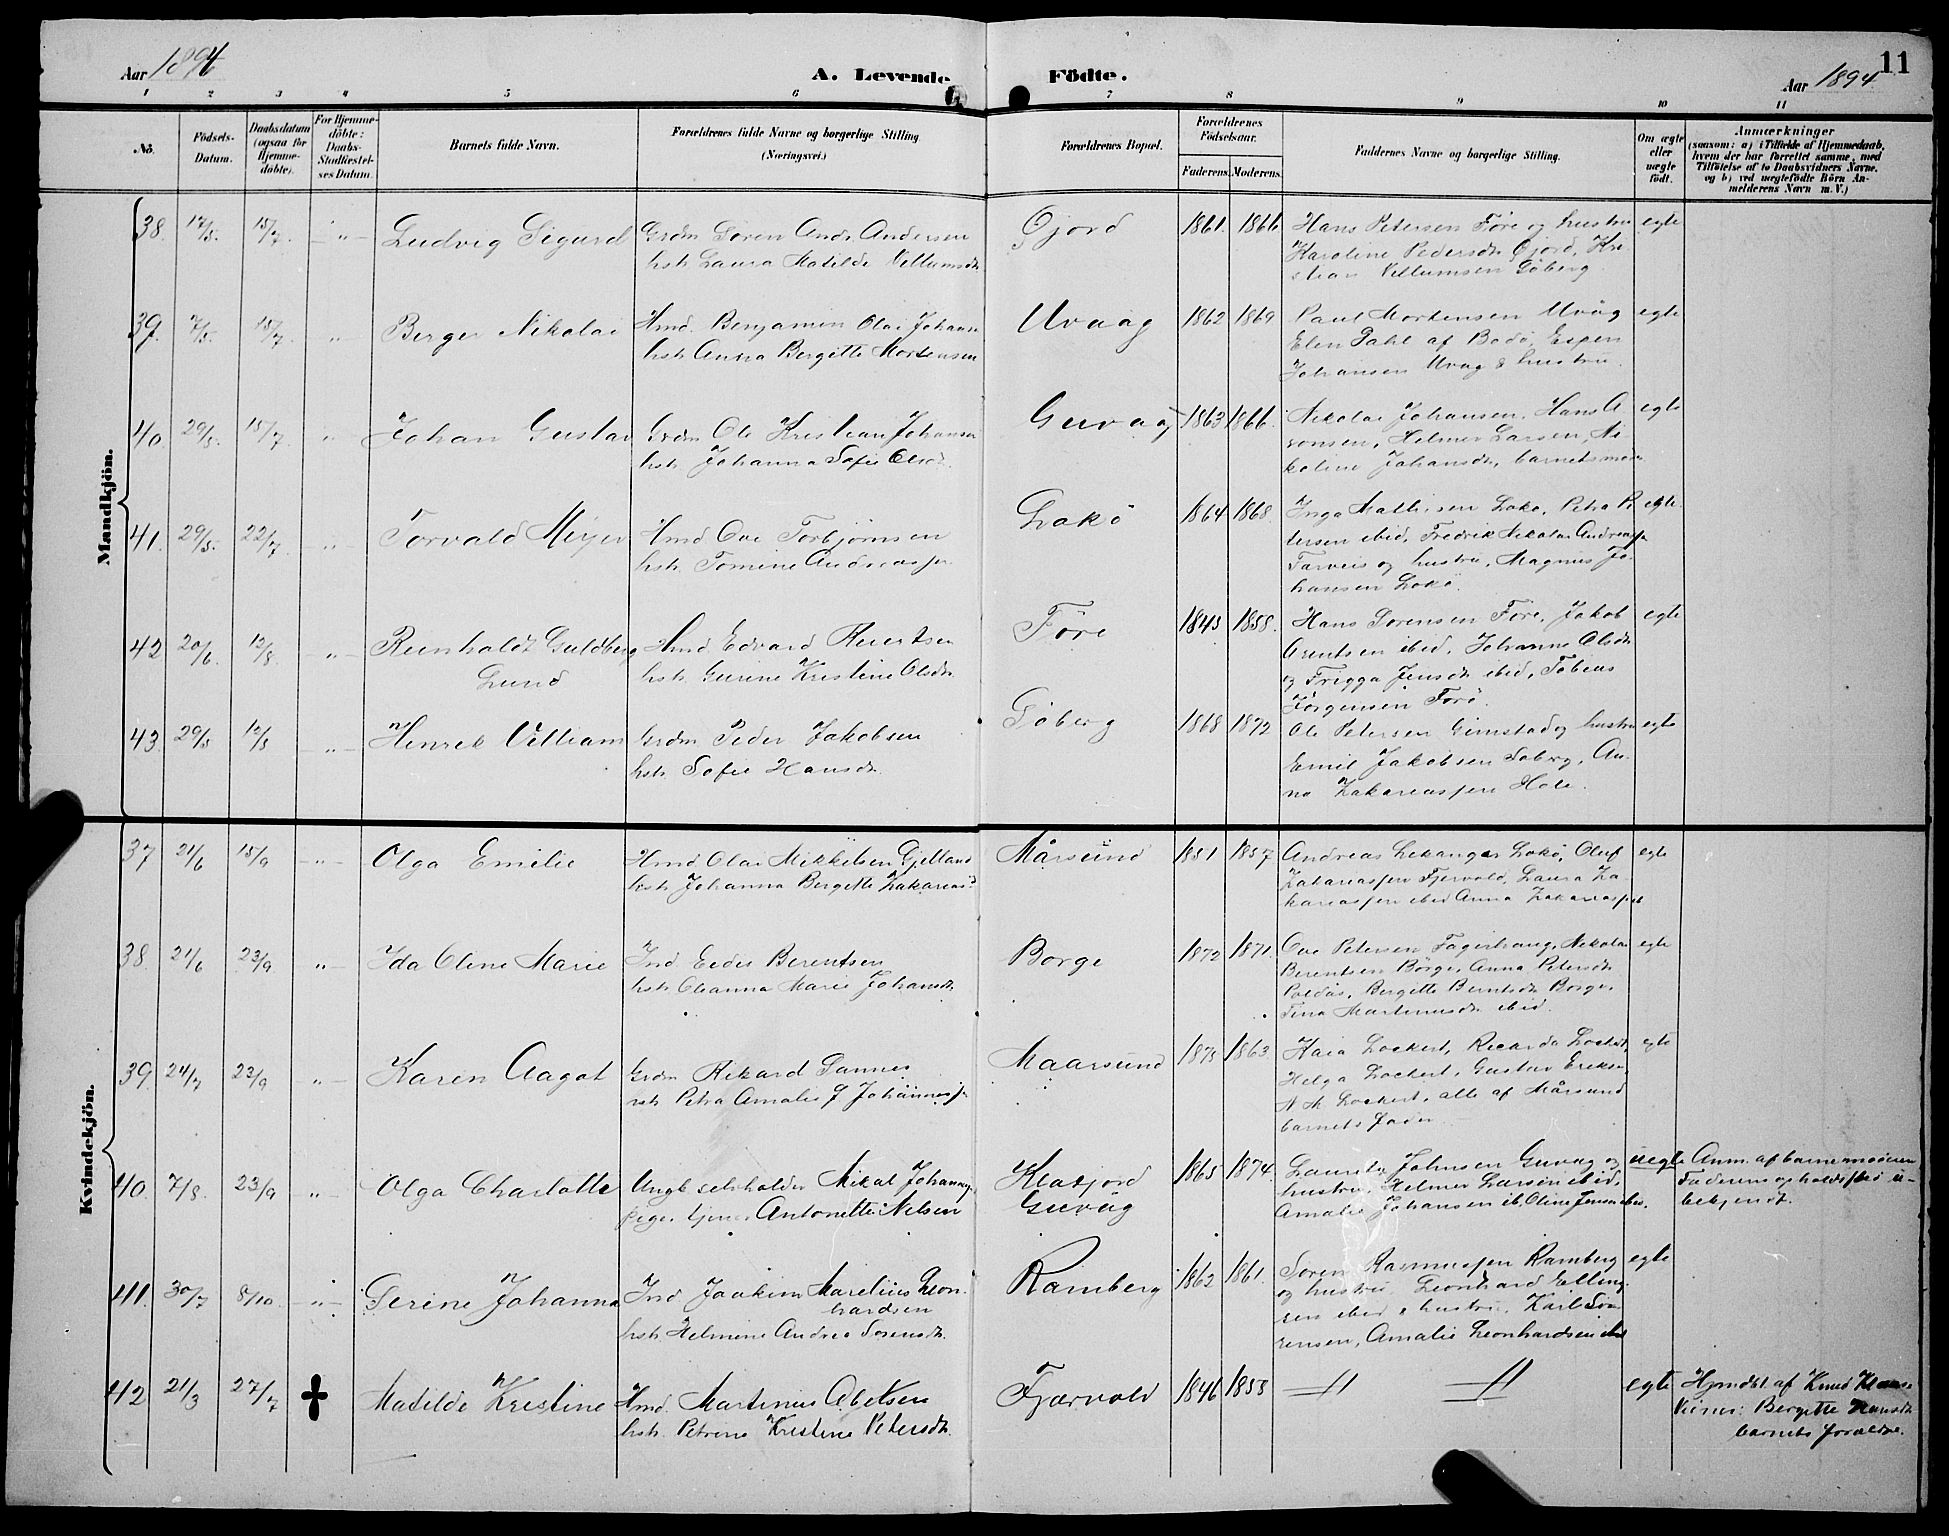 Aar 1894
A. Levende Födte.
Aar 1894
11
1 2 3 4 5 6 7 8 9 10 11
No.
Födsels-Datum.
Daabsdatum (ogsaa for Hjemme-döbte).
For Hjemme-döbte: Daabs-Stadfæstel-ses Datum.
Barnets fulde Navn.
Forældrenes fulde Navne og borgerlige Stilling (Næringsvei.)
Forældrenes Bopæl.
Forældrenes Födselsaar.
Faderens. Moderens.
Faddernes Navne og borgerlige Stilling.
Om ægte eller uægte födt.
Anmærkninger
(saasom: a) i Tilfælde af Hjemmedaab,
hvem der har forrettet samme, med
Tilföielse af to Daabsvidners Navne,
og b) ved uægtefödte Börn An-
melderens Navn m. V.)
Mandkjön.
38. 17/5. 15/7. " Ludvig Sigurd
Grdm Sören Andr. Andersen
hstr Laura Matilde Vellumsdtr
Gjord 1861. 1866
Hans Petersen Före og hustru
Karoline Pedersdtr Gjord, Kri-
stian Vellumsen Göberg
egte
39. 7/5. 15/7. " Berger Nikolai
Hmd. Benjamin Olai Johans
hstr Anna Bergitte Mortensen
Uvaag 1862 1869
Paul Mortensen Uvåg
Elen Dahl af Bodö, Espen
Johansen Uvag & hustru.
egte
40. 29/5. 15/7. " Johan Gustav
Grdm Ole Kristian Johansen
hstr Johanna Sofie Olsdtr.
Guvaag 1863 1866.
Nikolai Johansen, Hans A
ronsen, Helmer Larsen, Ni-
koline Johansdtr, barnets moder
egte
41. 29/5. 22/7. " Torvald Meyer
Hmd Ove Torbjörnsen
hstr. Tomine Andreassen
Lokö 1864 1868.
Inga Mathisen Lokö, Petra Pe
tersen ibid, Fredrik Nikolai Andreassen
Tarveis og hustru, Magnus Jo-
hansen Lokö.
egte.
42 20/6. 12/8. " Reinholdt Guldberg
Lund
Hmd Edvard Reiertsen
hstr. Gurine Kristine Olsdtr.
Före 1845 1858.
Hans Sörensen Före, Jakob
Arentsen ibid, Johanna Olsdtr
og Frigga Jensdtr ibid, Tobias
Jörgensen Forö.
egte
43. 29/5 12/8 " Henrik Villiam
Grdm Peder Jakobsen
hstr. Sofie Hansdtr.
Göberg 1868 1872
Ole Petersen Gimstad og hustru
Emil Jakobsen Soberg, An-
na Zakariassen Hole.
egte
Kvindekjön.
37 21/6 15/9 " Olga Emilie
Hmd Olai Mikkelsen Gjelland
hstr Johanna Bergitte Zakarias
Mårsund 1851 1857
Andreas Lekanger Lokö, Oluf
Zakariassen Fjervold, Laura Za-
kariassen ibid Anna Zakariassen
egte
38 21/6 23/9 " Ida Oline Marie
Ind Eeder Berentsen
hstr Oleanna Marie Johansdtr
Borge 1872 1871.
Ove Petersen Fagerhaug, Nikolai
Berentsen Börge, Anna Petersdtr
Poldås, Bergitte Berntsdtr Borge,
Tina Martinusdtr ibid.
egte
39. 24/7 23/9 " Karen Aagot
Grdm Rikard Sannes
hstr Petra Amalie J Johannessen
Maarsund 1873 1863
Kaia Lockert, Ricarda Lockert,
Helga Lockert, Gustav Eriksen
N M Lockert, alle af Mårsund
barnets fader
egte
40. 7/8. 23/9 " Olga Charlotte
Ungk selvholder Mikal Johannes
pige tjener Antonette Nelsen
Klaxfjord
Guvåg
1865 1874.
Lauritz Johnsen Guvåg og
hustru, Helmer Larsen ibid,
Amalie Johansen ib, Oline Jensen ibid.
uegte
Anm. af barnemoderen
Faderens opholdssted u-
bekjendt.
41. 30/7 8/10. " Gerine Johanna
Ind Joakim Marelius Leon-
hardsen
hstr. Helmine Andrea Sörensdtr.
Ramberg 1862 1861.
Soren Rasmussen Ramberg
og hustru, Leonhard Elling-
sen ibid & hustru, Karl Sö-
rensen, Amalie Leonhardsen ibid
egte
42 21/3 27/7 ✝ Matilde Kristine
Hmd. Martinus Abelsen
hstr. Petrine Kristine Petersdtr.
Fjærvold 1846 1853
—"— —"—
egte
Hjmdbt af Knud Klaus
Vidner: Bergitte Hansdtr
barnets forældre.